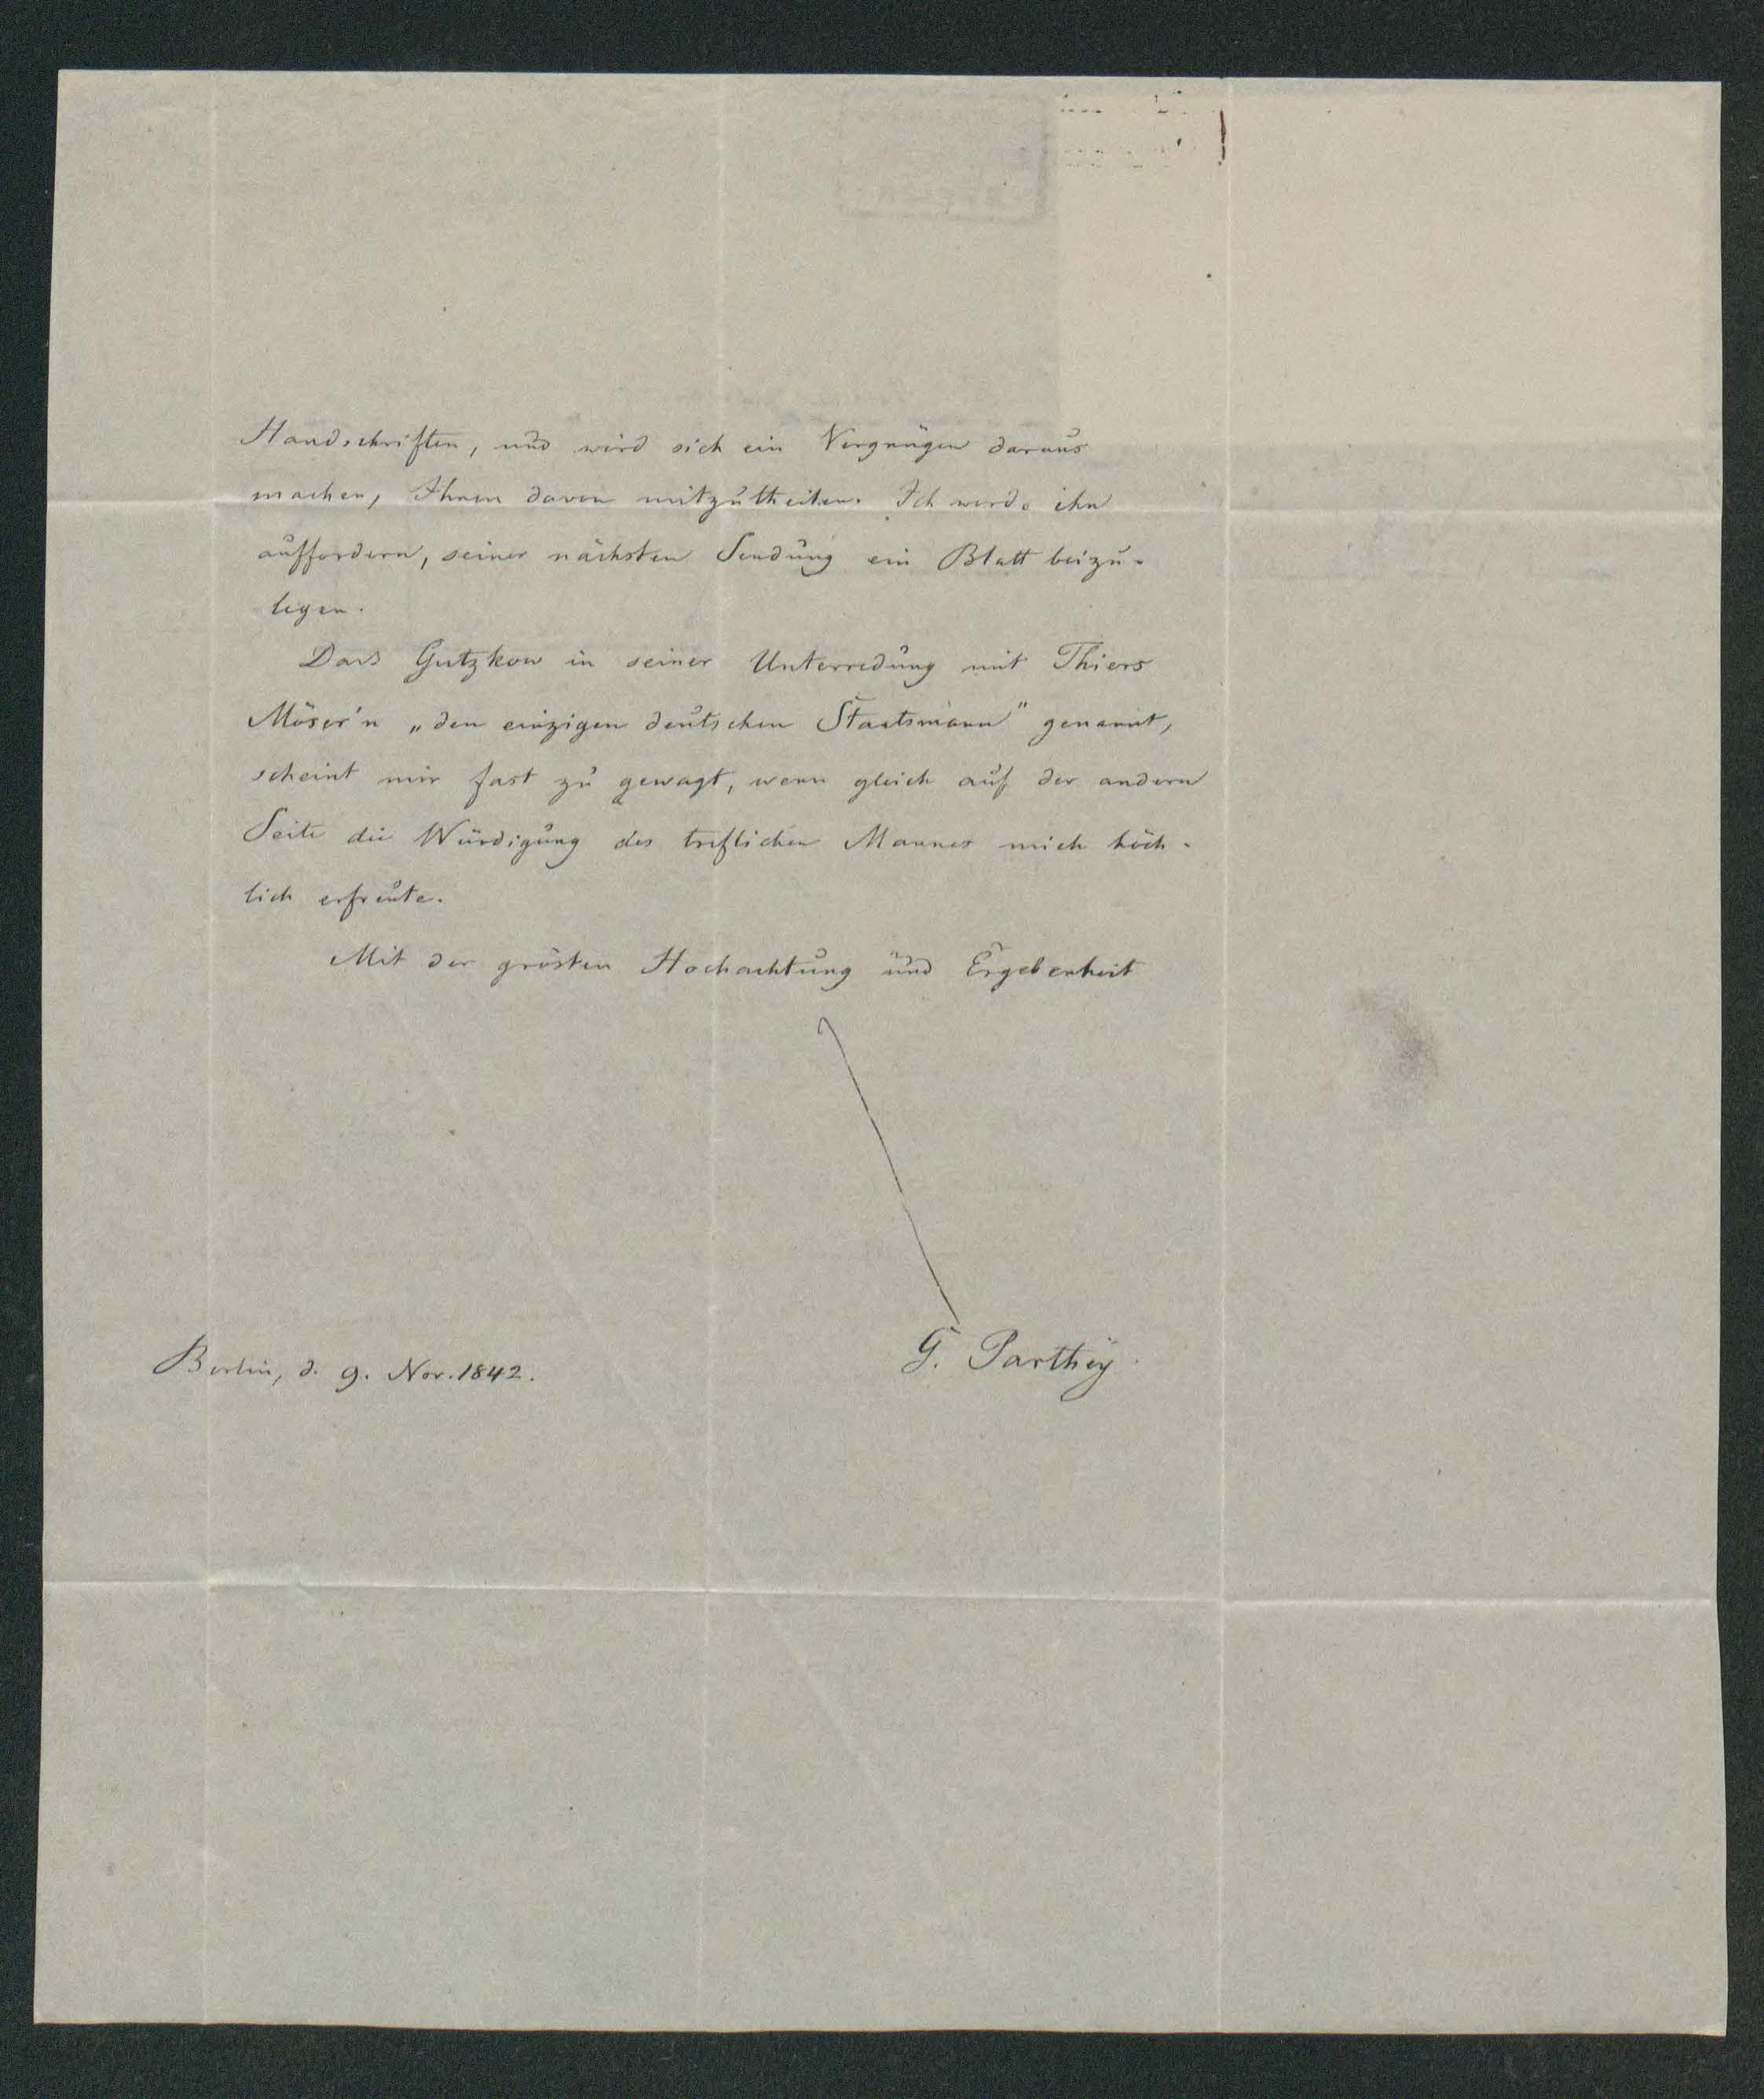 Handschriften, und wird sich ein Vergnügen daraus
machen, Ihnen davon mitzutheilen. Ich werde ihn
auffordern, seiner nächsten Sendung ein Blatt beizu-
legen.
Dass Gutzkow in seiner Unterredung mit Thiers
Möser'n „den einzigen deutschen Staatsmann" genannt,
scheint mir fast zu gewagt, wenn gleich auf der andern
Seite die Würdigung des treflichen Mannes mich höch-
lich erfreute.
Mit der grösten Hochachtung und Ergebenheit
G. Parthey.
Berlin, d. 9. Nov. 1842.